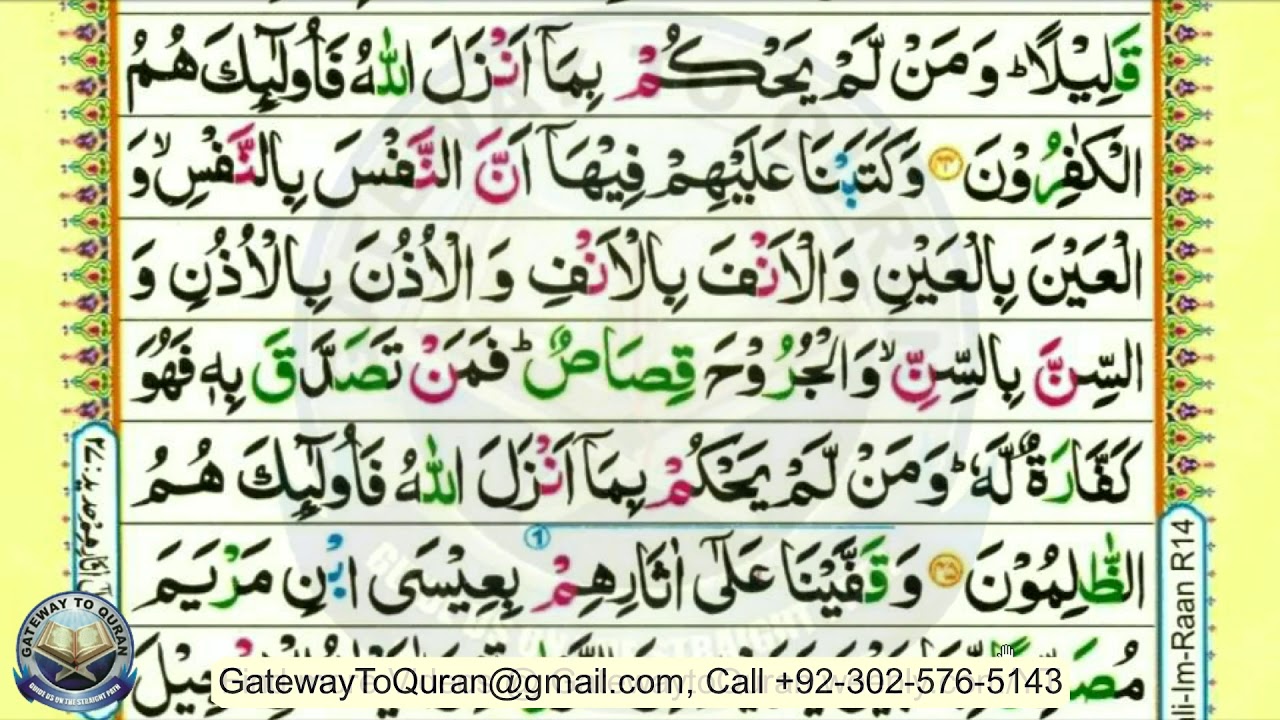 قَلِيْلًا ؕ وَ مَنْ لَّمْ يَحْكُمْ بِمَاۤ اَنْزَلَ اللّٰهُ فَاُولٰٓىِٕكَ هُمُ
الْكٰفِرُوْنَ ۴۴ وَ كَتَبْنَا عَلَيْهِمْ فِيْهَاۤ اَنَّ النَّفْسَ بِالنَّفْسِ ۙ وَ
الْعَيْنَ بِالْعَيْنِ وَ الْاَنْفَ بِالْاَنْفِ وَ الْاُذُنَ بِالْاُذُنِ وَ
السِّنَّ بِالسِّنِّ ۙ وَ الْجُرُوْحَ قِصَاصٌ ؕ فَمَنْ تَصَدَّقَ بِهٖ فَهُوَ
كَفَّارَةٌ لَّهٗ ؕ وَ مَنْ لَّمْ يَحْكُمْ بِمَاۤ اَنْزَلَ اللّٰهُ فَاُولٰٓىِٕكَ هُمُ
الظّٰلِمُوْنَ ۴۵ وَ قَفَّيْنَا عَلٰۤى اٰثَارِهِمْ بِعِيْسَى ابْنِ مَرْيَمَ
GatewayToQuran@gmail.com, Call +92-302-576-5143
li-Im-Raan R14
GATEWAY TO QURAN
GUIDE US ON THE STRAIGHT PATH